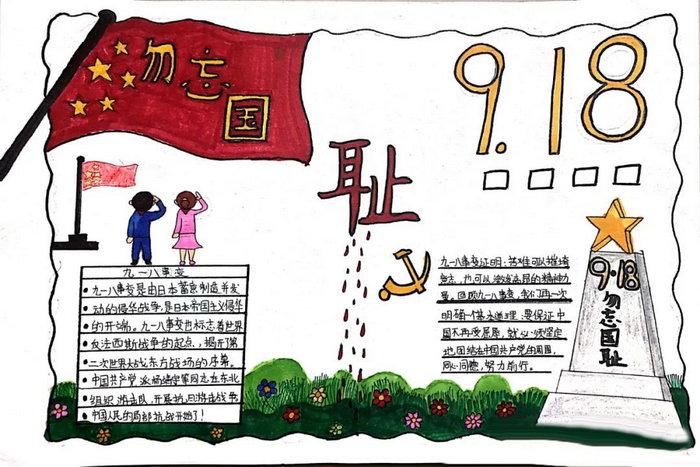 勿忘国
耻
9.18
九一八事变
九一八事变是由日本蓄意制造并发
动的侵华战争,是日本帝国主义侵华
的开端。九一八事变也标志着世界
反法西斯战争的起点,揭开了第
二次世界大战东方战场的序幕。
中国共产党派杨靖宇等同志在东北
组织游击队,开展抗日游击战争
中国人民的局部抗战开始了!
九一八事变证明:苦难可以摧垮
意志,也可以激发出昂的精神力
量。回顾九一八事变,我们再一次
明确一个基本道理:要保证中
国不再受屈辱,就必须坚定
地团结在中国共产党的周围,
同心同德,努力前行。
9·18
勿忘国耻